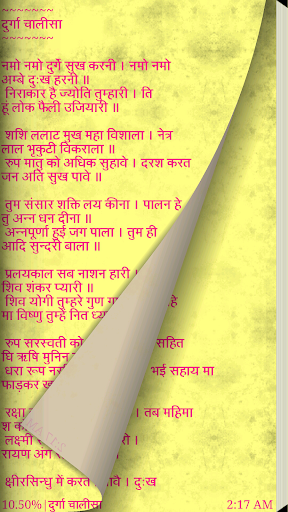 ~~~~~~~
दुर्गा चालीसा
~~~~~~~
नमो नमो दुर्गे सुख करनी । नमो नमो
अम्बे दुःख हरनी ॥
निराकार है ज्योति तुम्हारी । ति
हूं लोक फैली उजियारी ॥
शशि ललाट मुख महा विशाला । नेत्र
लाल भृकुटी विकराला ॥
रुप मातु को अधिक सुहावे । दरश करत
जन अति सुख पावे ॥
तुम संसार शक्ति लय कीना । पालन हे
तु अन्न धन दीना ॥
अन्नपूर्णा हुई जग पाला । तुम ही
आदि सुन्दरी बाला ॥
प्रलयकाल सब नाशन हारी ।
शिव शंकर प्यारी ॥
शिव योगी तुम्हरे गुण हे
मा विष्णु तुम्हें नित
रुप सरस्वती को सहित
घि ऋषि मुनिन
धरा रूप भई सहाय मा
फाड़कर
रक्षा तब महिमा
लक्ष्मी । 
रायण अंग
क्षीरसिन्धु में करत । दुःख
10.50% | दुर्गा चालीसा 2:17 AM